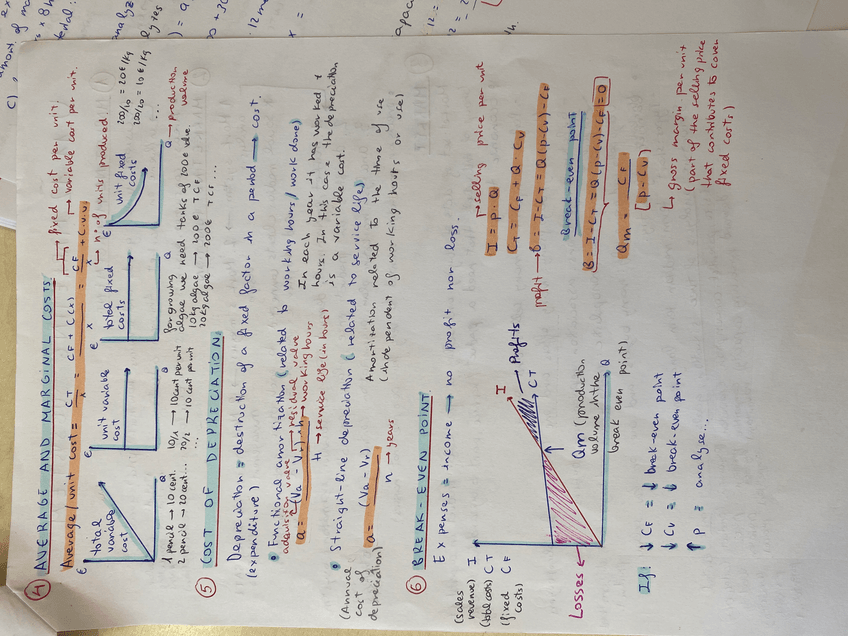 ④ AVERAGE AND MARGINAL COSTS
Average / unit cost = CT/x = CF + C(x)/x = CF/x + C.v.u
fixed cost per unit.
variable cost per unit.
nº of units produced.
€ total variable cost Q
€ unit variable cost Q
€ total fixed costs Q
€ unit fixed costs Q → production volume
1 pencil → 10 cent.
2 pencil → 20 cent...
10/1 → 10 cent per unit
20/2 → 10 cent point
...
for growing
algae we need tanks of 200 € vale.
10 kg algae → 200 € TCF
20 kg algae → 200 € TCF...
200/10 = 20 €/kg
200/20 = 10 €/kg
...
⑤ COST OF DEPRECIATION
Depreciation = destruction of a fixed factor in a period → cost.
(expenditure)
• Functional amortization (related to working hours / work done)
adquisition value
residual value
a = (Va - Vr)/H · h → working hours
H → service life (in hours)
In each year it has worked x
hours. In this case the depreciation
is a variable cost.
• Straight-line depreciation (related to service life)
(Annual
cost of
depreciation)
a = (Va - Vr)/n
n → years
Amortization related to the time of use
(independent of working hours or use)
⑥ BREAK-EVEN POINT.
Expenses = income → no profit nor loss.
(sales revenue) I
(total costs) CT
(fixed costs) CF
I
Profits
CT
Losses
Q
Qm (production
volume in the
break even point)
selling price per unit
I = p · Q
CT = CF + Q · CV
profit → B = I - CT = Q(p - CV) - CF
Break-even point
B = I - CT = Q(p - CV) - CF = 0
Qm = CF/[p - CV]
↳ gross margin per unit
(part of the selling price
that contributes to cover
fixed costs)
If:
↓ CF = ↓ break-even point
↓ CV = ↓ break-even point
↑ P = analyse...